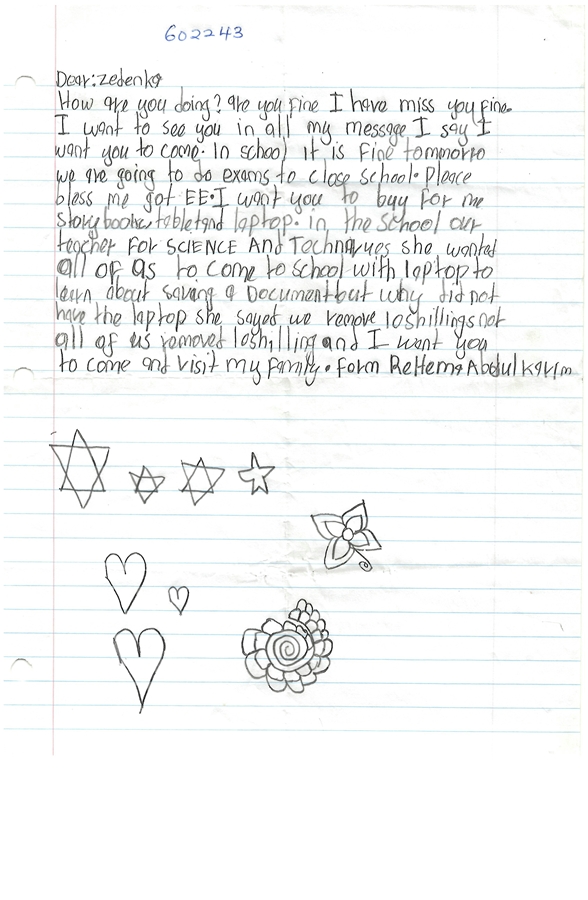 602243
Dear: Zedenka
How are you doing? are you fine I have miss you fine.
I want to see you in all my message I say I
want you to come. In school it is fine tommorro
we are going to do exams to close school. Pleace
bless me got EE. I want you to buy for me
story books, tablet and laptop. in the school our
teacher For SCIENCE And Technarues she wanted
all of as to come to school with laptop to
learn about saving a Document but why did not
have the laptop she sayed we remove 10shillings not
all of us removed 10shilling and I want you
to come and visit my family. form Rehema Abdulkarim